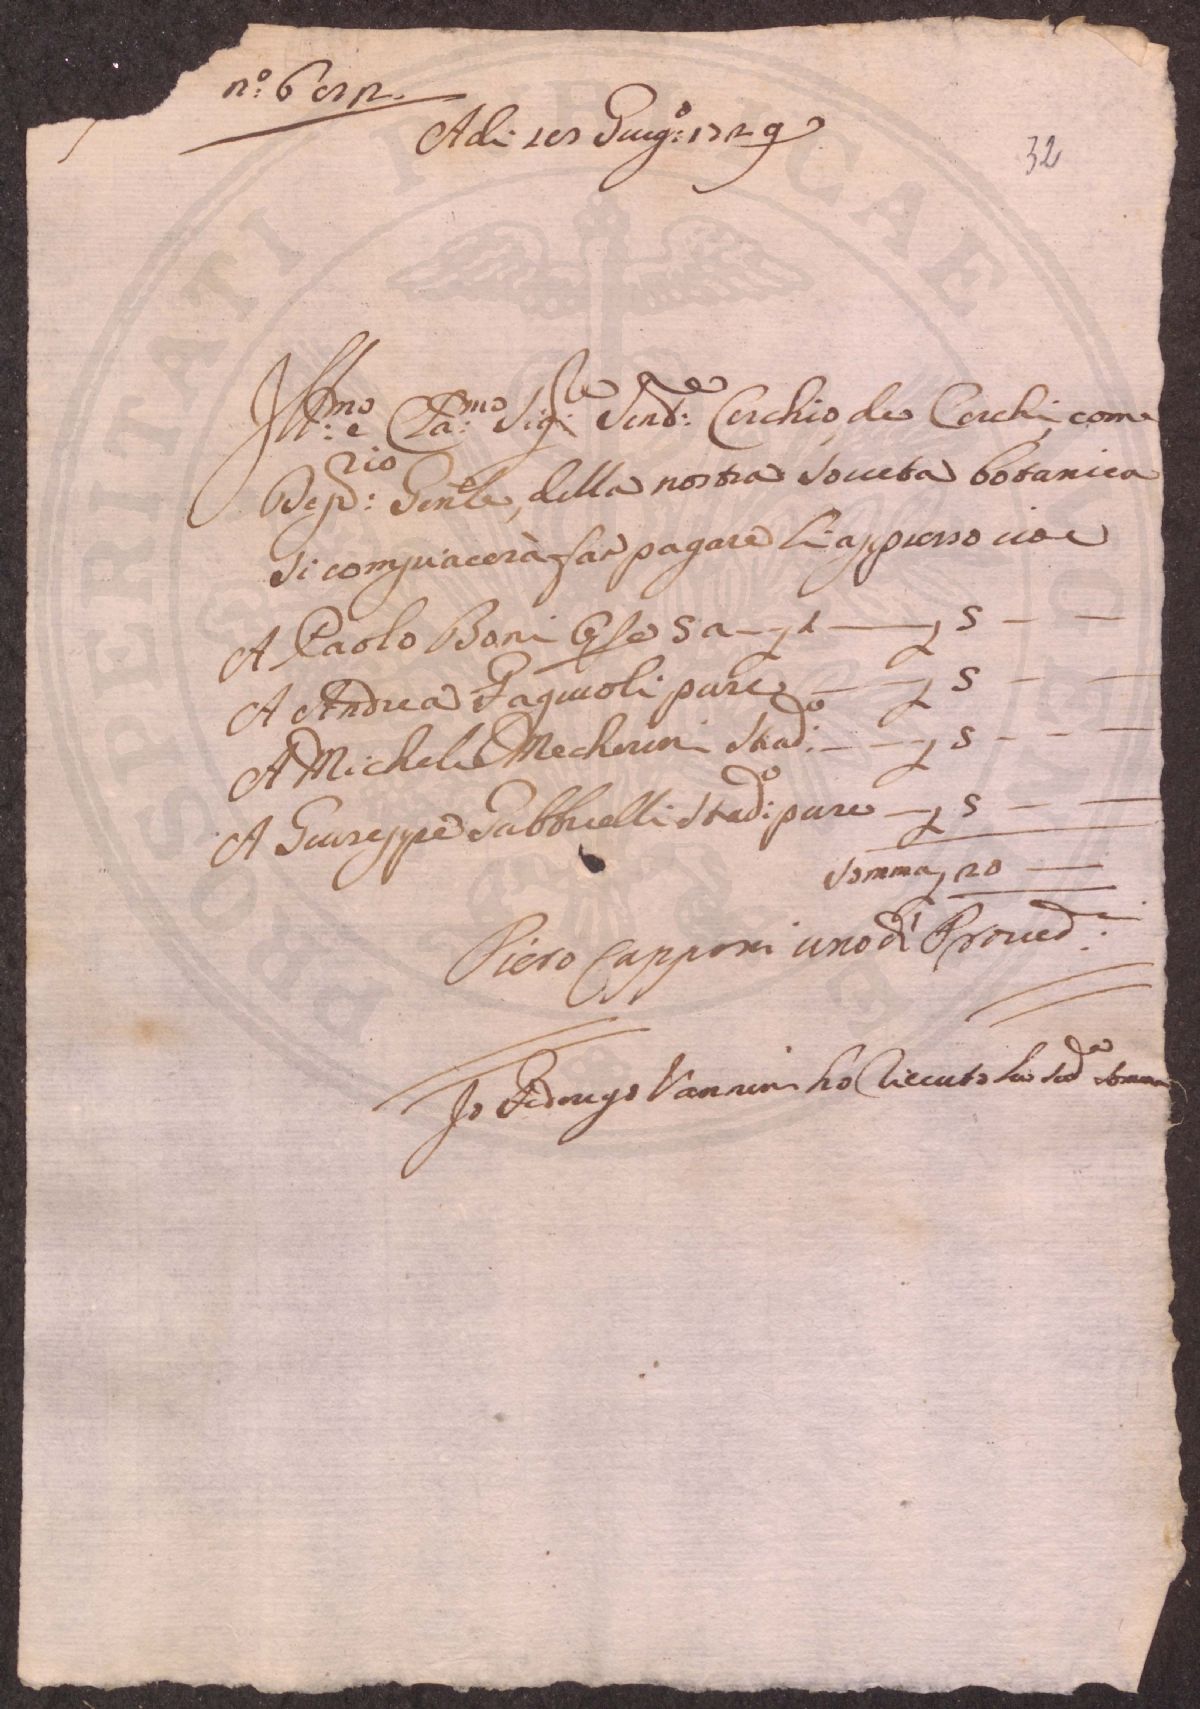 n.º 6
Adì Giug.º 1729
32
Ill.mo e Cla.mo Sig.re Send.re Cerchio de Cerchi, come
Dep.rio Gen.le, della nostra Societa botanica
si compiacerà far pagare li appresso cioe
A Paolo Boni 5 a — 5 — —
A Andrea Fagiuoli pure — 5 — —
A Michele Mecherini Stad.º — — 5 — — —
A Giuseppe Gabbrielli Stad.º pure — 5 — —
Somma 20 —
Piero Capponi uno di Proved.ri
Io Federigo Vannini hò riceuto la sud.a somma
PROSPERITATI PUBLICAE